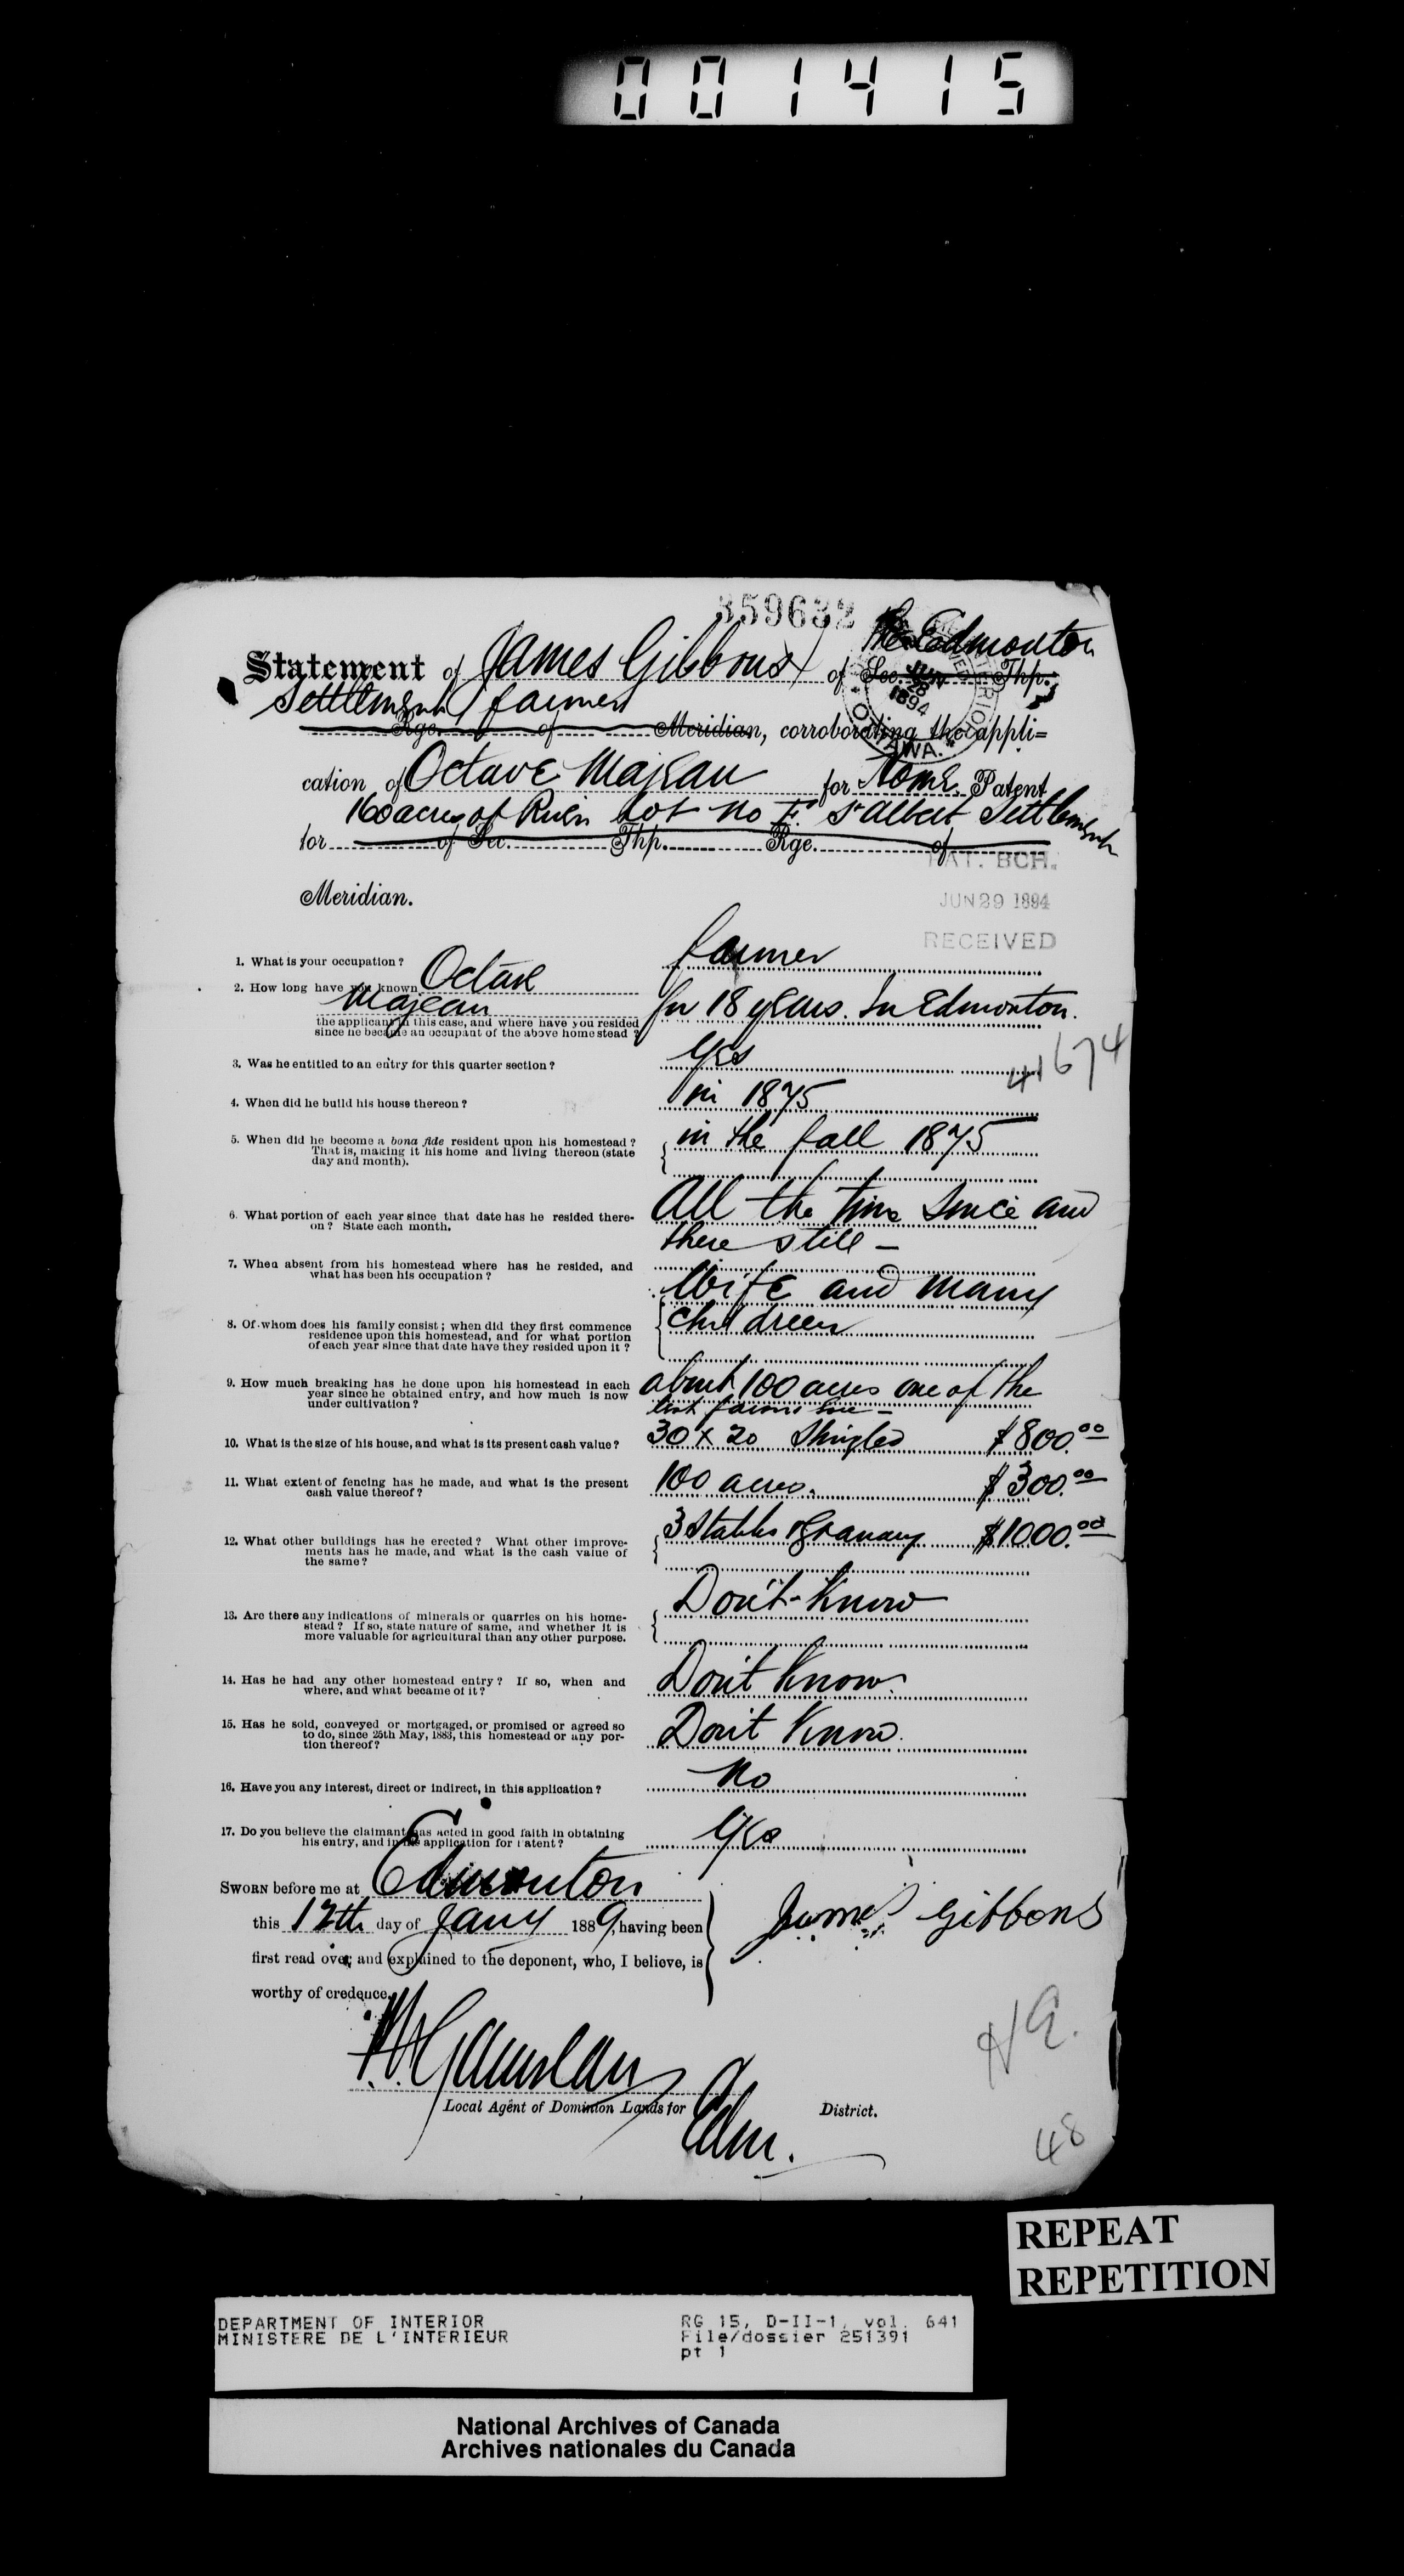 001415
359632
Statement of James Gibbons of Sec. the Edmonton Thp.
Settlement farmer
Rge. of Meridian, corroborating the appli=
cation of Octave Majeau for Home. Patent
160 acres of River Lot No F St Albert Settlement
for of Sec. Thp. Rge. of
PAT. BCH.
Meridian.
JUN 29 1894
RECEIVED
JUN 28 1894
OTTAWA.
1. What is your occupation? farmer
2. How long have you known Octave
Majeau for 18 years. In Edmonton.
the applicant in this case, and where have you resided
since he became an occupant of the above homestead?
3. Was he entitled to an entry for this quarter section? Yes
41674
4. When did he build his house thereon? in 1875
5. When did he become a bona fide resident upon his homestead? in the fall 1875
That is, making it his home and living thereon (state
day and month).
6. What portion of each year since that date has he resided there- All the time since and
on? State each month. there still -
7. When absent from his homestead where has he resided, and
what has been his occupation?
Wife and many
8. Of whom does his family consist; when did they first commence children
residence upon this homestead, and for what portion
of each year since that date have they resided upon it?
9. How much breaking has he done upon his homestead in each about 100 acres one of the
year since he obtained entry, and how much is now
under cultivation? farms
10. What is the size of his house, and what is its present cash value? 30 x 20 Shingled $800.00
11. What extent of fencing has he made, and what is the present 100 acres. $300.00
cash value thereof?
12. What other buildings has he erected? What other improve- 3 Stables & Granary $1000.00
ments has he made, and what is the cash value of
the same?
13. Are there any indications of minerals or quarries on his home- Don't Know
stead? If so, state nature of same, and whether it is
more valuable for agricultural than any other purpose.
14. Has he had any other homestead entry? If so, when and Don't Know.
where, and what became of it?
15. Has he sold, conveyed or mortgaged, or promised or agreed so Don't Know.
to do, since 25th May, 1883, this homestead or any por-
tion thereof?
16. Have you any interest, direct or indirect, in this application? No
17. Do you believe the claimant has acted in good faith in obtaining Yes
his entry, and in the application for patent?
SWORN before me at Edmonton
this 12th day of Jany 1889, having been James Gibbons
first read over and explained to the deponent, who, I believe, is
worthy of credence.
Local Agent of Dominion Lands for Edm. District.
48
REPEAT
REPETITION
DEPARTMENT OF INTERIOR RG 15, D-II-1, vol. 641
MINISTERE DE L'INTERIEUR File/dossier 251391
pt 1
National Archives of Canada
Archives nationales du Canada